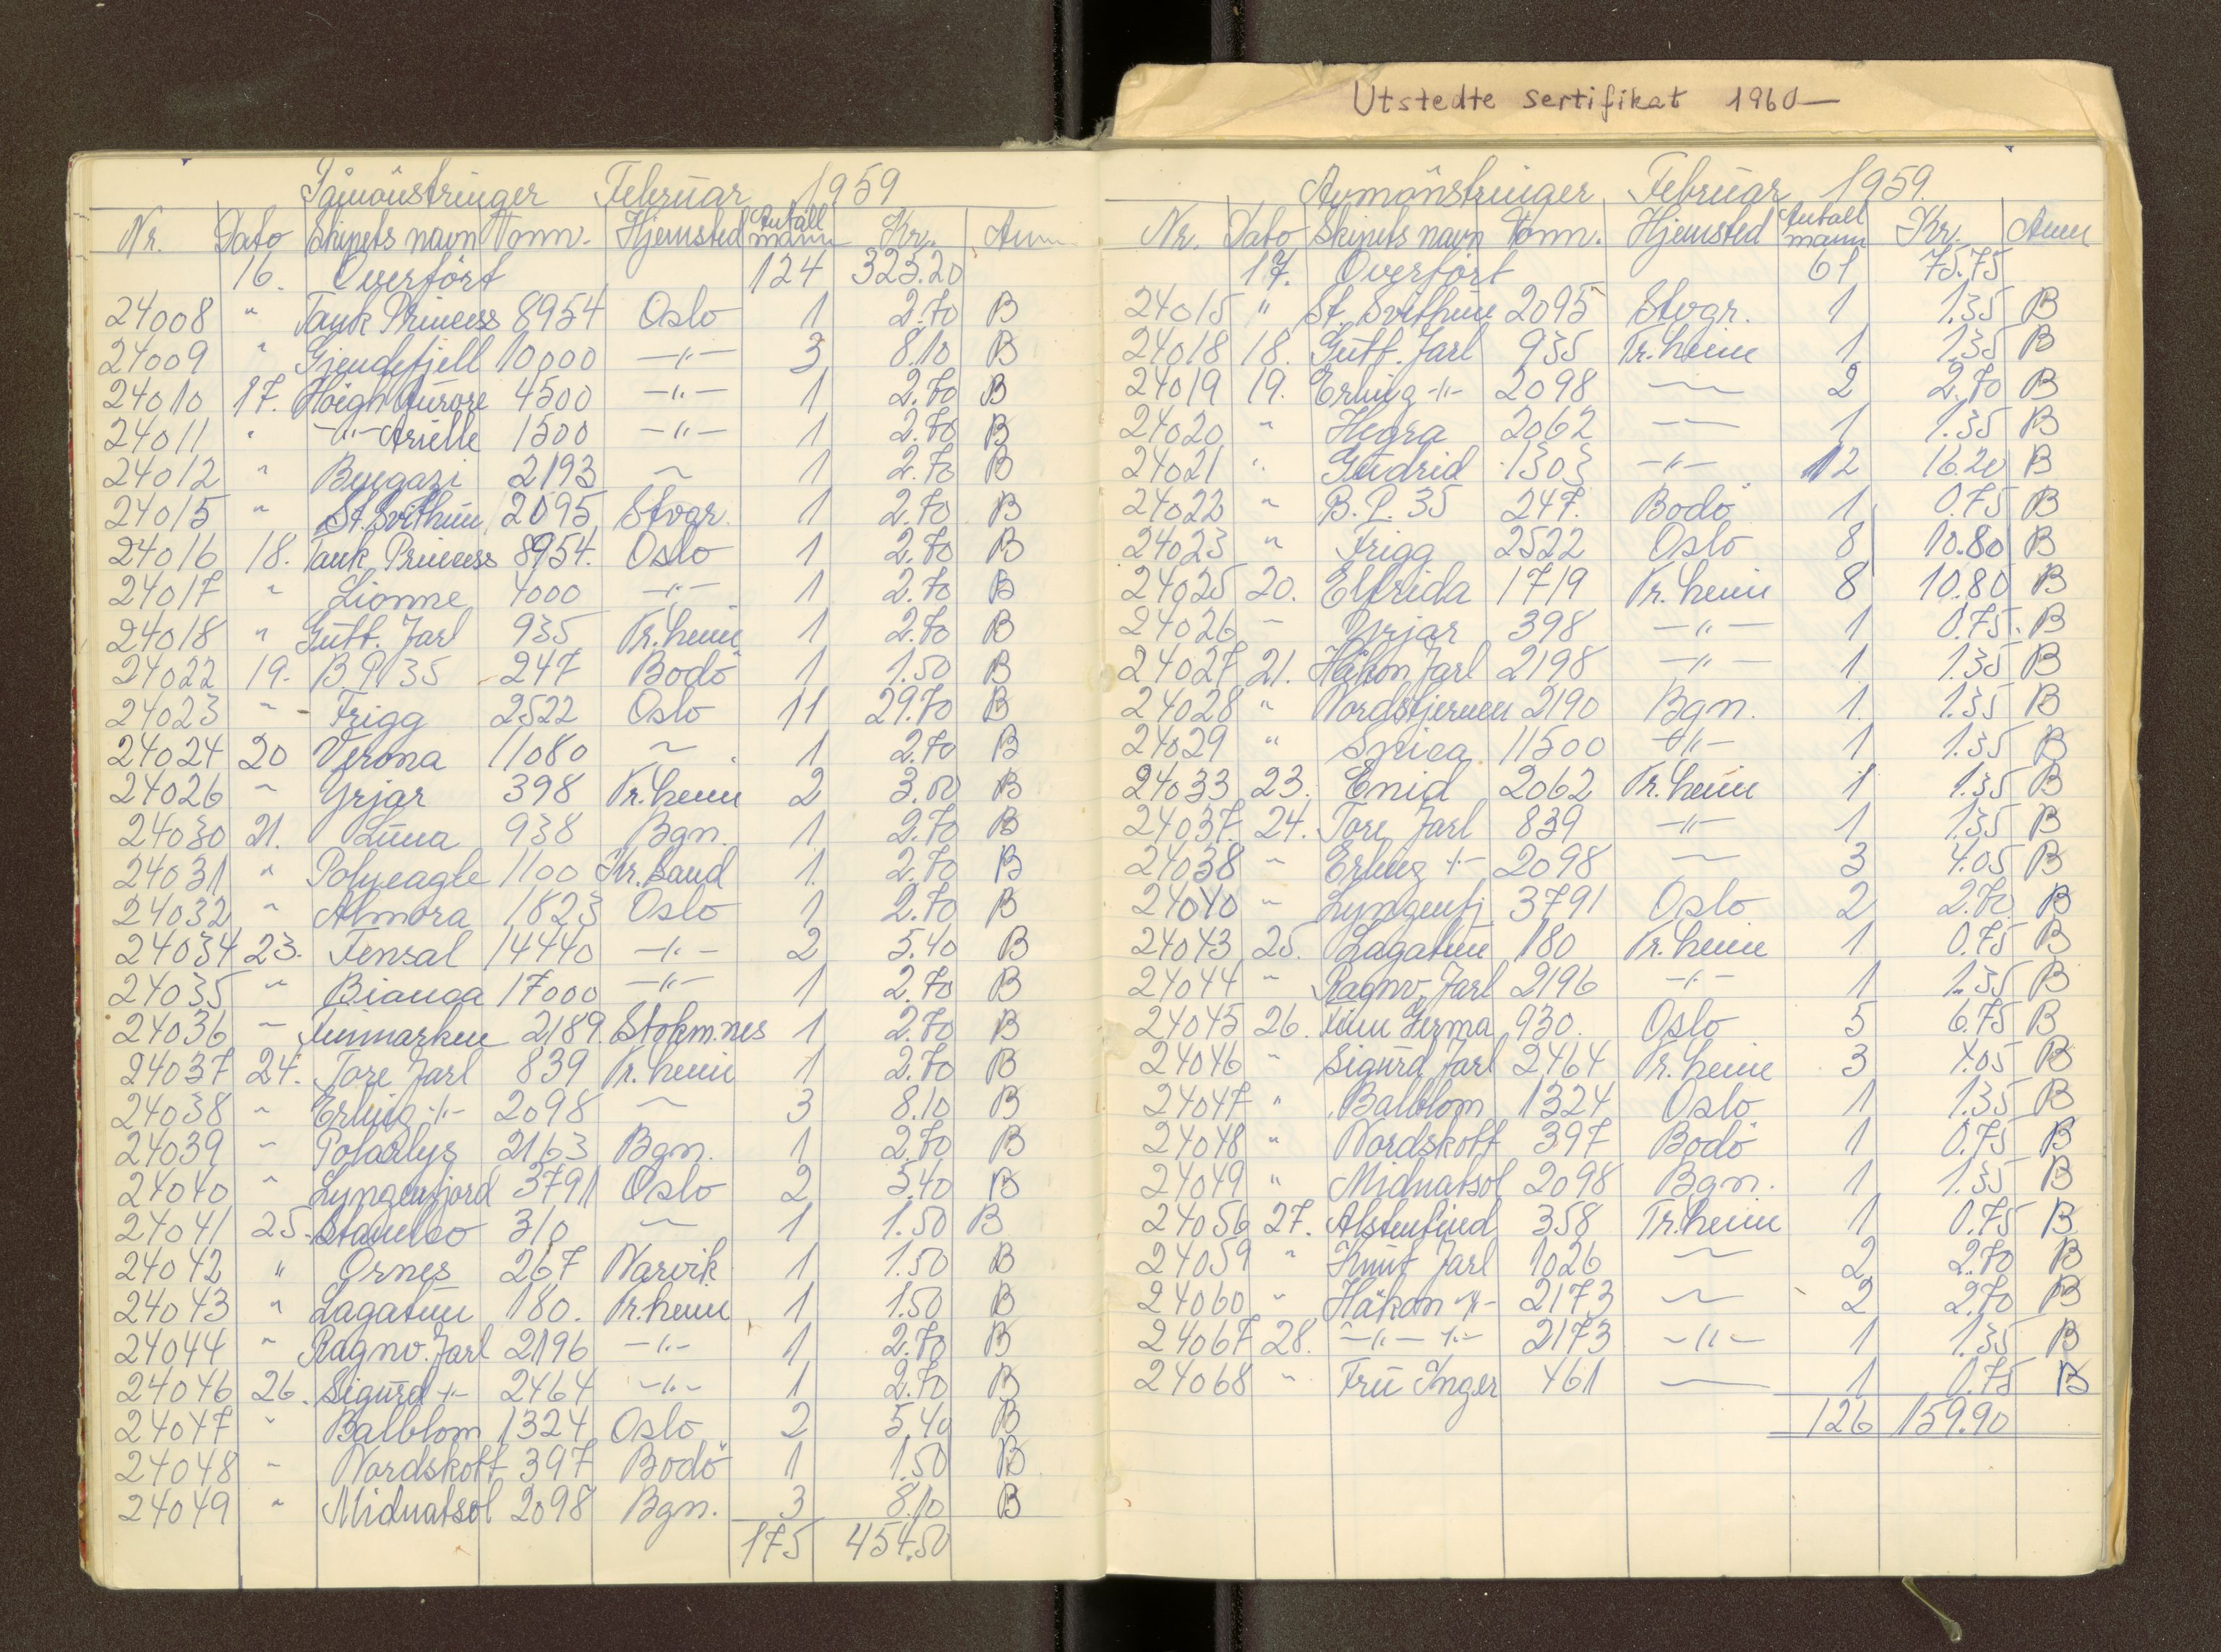 Utstedte sertifikat 1960—
Påmönstringer Februar 1959
Nr. Dato Skipets navn Tonn. Hjemsted Antall mann Kr. Anm
16. Overfört 124 323.20
24008 " Tank Princess 8954 Oslo 1 2.70 B
24009 " Gjendefjell 10000 —"— 3 8.10 B
24010 17. Höegh Aurore 4500 —"— 1 2.70 B
24011 " —"— Arielle 1500 —"— 1 2.70 B
24012 " Bengazi 2193 ~ 1 2.70 B
24015 " St. Svithun 2095 Stvgr. 1 2.70 B
24016 18. Tank Princess 8954. Oslo 1 2.70 B
24017 " Lionne 4000 —"— 1 2.70 B
24018 " Gutt. Jarl 935 Tr.heim 1 2.70 B
24022 19. B.P. 35 247 Bodö 1 1.50 B
24023 " Frigg 2522 Oslo 11 29.70 B
24024 20 Verona 11080 ~ 1 2.70 B
24026 " Yrjar 398 Tr.heim 2 3.00 B
24030 21. Luna 938 Bgn. 1 2.70 B
24031 " Polyeagle 1100 Kr.sand 1 2.70 B
24032 " Almora 1823 Oslo 1 2.70 B
24034 23. Fensal 14440 —"— 2 5.40 B
24035 " Bianca 17000 —"— 1 2.70 B
24036 " Finnmarken 2189. Stokm.nes 1 2.70 B
24037 24. Tore Jarl 839 Tr.heim 1 2.70 B
24038 " Erling —"— 2098 ~ 3 8.10 B
24039 " Polarlys 2163 Bgn. 1 2.70 B
24040 " Lyngenfjord 3791 Oslo 2 5.40 B
24041 25. 310 ~ 1 1.50 B
24042 " Ornes 267 Narvik 1 1.50 B
24043 " Lagatun 180. Tr.heim 1 1.50 B
24044 " Ragnv. Jarl 2196 —"— 1 2.70 B
24046 26. Sigurd —"— 2464 —"— 1 2.70 B
24047 " Balblom 1324 Oslo 2 5.40 B
24048 " Nordskott 397 Bodö 1 1.50 B
24049 " Midnatsol 2098 Bgn. 3 8.10 B
175 454.50
Avmönstringer Februar 1959.
Nr. Dato Skipets navn Tonn. Hjemsted Antall mann Kr. Anm
17. Overfört 61 75.75
24015 " St. Svithun 2095 Stvgr. 1 1.35 B
24018 18. Gutt. Jarl 935 Tr.heim 1 1.35 B
24019 19. Erling —"— 2098 ~ 2 2.70 B
24020 " Hegra 2062 — 1 1.35 B
24021 " Gudrid 1303 —"— 12 16.20 B
24022 " B.P. 35 247. Bodö 1 0.75 B
24023 " Frigg 2522 Oslo 8 10.80 B
24025 20. Elfrida 1719 Tr.heim 8 10.80 B
24026 " Yrjar 398 —"— 1 0.75. B
24027 21. Håkon Jarl 2198 —"— 1 1.35 B
24028 " Nordstjernen 2190 Bgn. 1 1.35 B
24029 " Spica 11500 —"— 1 1.35 B
24033 23. Enid 2062 Tr.heim 1 1.35 B
24037 24. Tore Jarl 839 —"— 1 1.35 B
24038 " Erling —"— 2098 ~ 3 4.05 B
24040 " Lyngenfj. 3791 Oslo 2 2.70 B
24043 25. Lagatun 180 Tr.heim 1 0.75 B
24044 " Ragnv. Jarl 2196 —"— 1 1.35 B
24045 26. 930. Oslo 5 6.75 B
24046 " Sigurd Jarl 2464 Tr.heim 3 4.05 B
24047 " Balblom 1324 Oslo 1 1.35 B
24048 " Nordskott 397 Bodö 1 0.75 B
24049 " Midnatsol 2098 Bgn. 1 1.35 B
24056 27. Alstenfind 358 Tr.heim 1 0.75 B
24059 " Knut Jarl 1026 ~ 2 2.70 B
24060 " Håkon —"— 2173 ~ 2 2.70 B
24067 28. —"— —"— 2173 —"— 1 1.35 B
24068 " Fru Inger 461 — 1 0.75 B
126 159.90